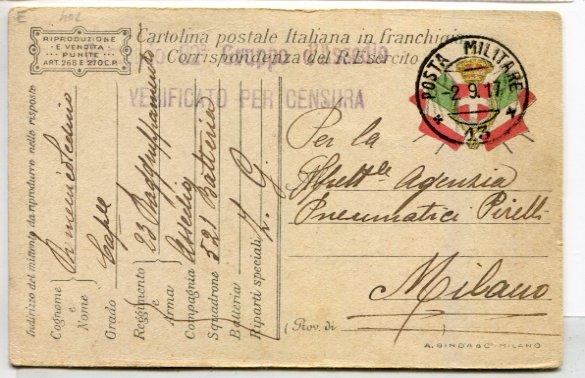 RIPRODUZIONE
E VENDITA
PUNITE
ART. 268 E 270 C.P.
Cartolina postale Italiana in franchigia
Corrispondenza del R. Esercito
Gruppo d'Assedio
VERIFICATO PER CENSURA
POSTA MILITARE
-2.9.17
13
Per la
Agenzia
Pneumatici Pirelli
Milano
(Prov. di )
A. BINDA & C. MILANO
Indirizzo del mittente da riprodurre nello risposte
Cognome
e
Nome
Grado
Reggimento 23 Raggruppamento
e
Arma Assedio
Compagnia
Squadrone 521 Batteria
Batteria
Riparti speciali Z. G.